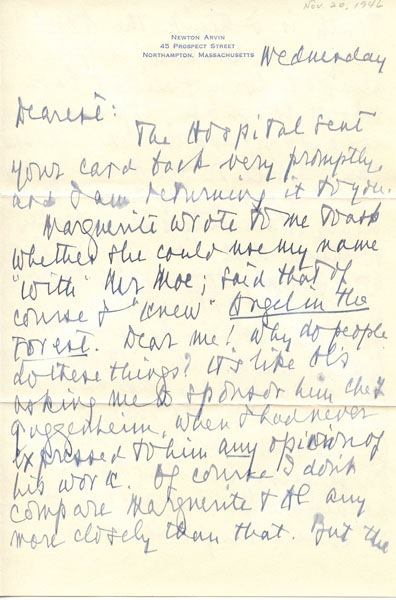 Nov. 20, 1946
NEWTON ARVIN
45 PROSPECT STREET
NORTHAMPTON, MASSACHUSETTS
Wednesday
Dearest:
The Hospital sent
your card back very promptly,
and I am returning it to you.
Marguerite wrote to me to ask
whether she could use my name
"with" Mr Moe; said that of
course I "knew" Angel in the
Forest. Dear me! Why do people
do these things? It's like Al's
asking me to sponsor him
Guggenheim, when I had never
expressed to him any opinion of
his work. Of course I don't
compare Marguerite & Al any
more closely than that. But the